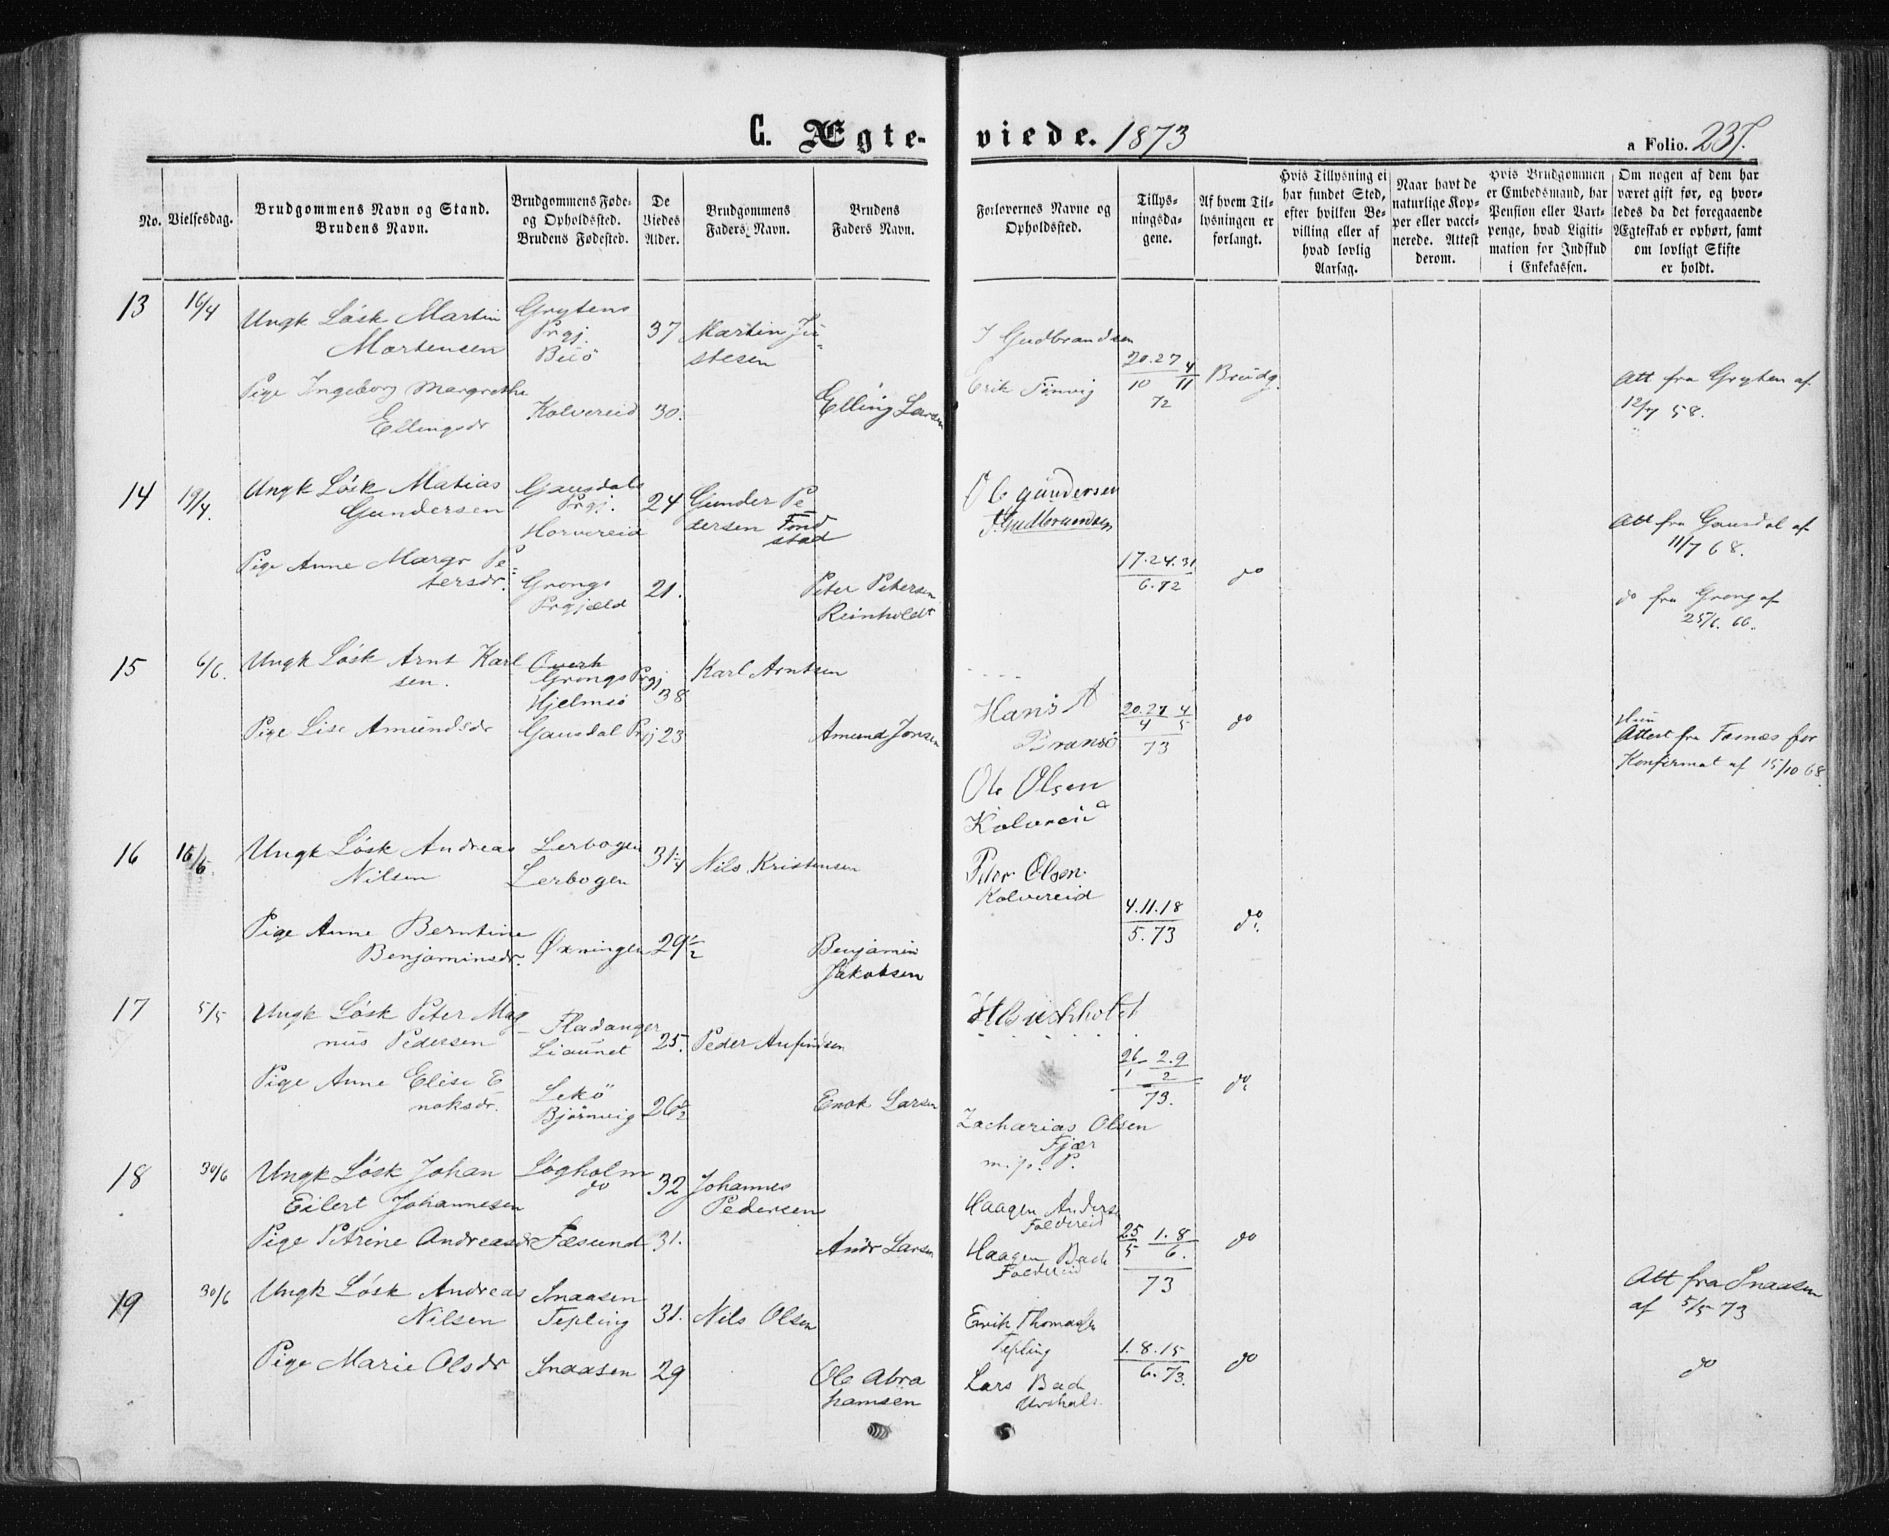 C. Ægte-viede. 1873
a Folio. 237.
No.
Vielsesdag.
Brudgommens Navn og Stand.
Brudens Navn.
Brudgommens Føde-
og Opholdssted.
Brudens Fødested.
De
Viedes
Alder.
Brudgommens
Faders Navn.
Brudens
Faders Navn.
Forlovernes Navne og
Opholdssted.
Tillys-
ningsda-
gene.
Af hvem Til-
lysningen er
forlangt.
Hvis Tillysning ei
har fundet Sted,
efter hvilken Be-
villing eller af
hvad lovlig
Aarsag.
Naar havt de
naturlige Kop-
per eller vacci-
nerede. Attest
derom.
Hvis Brudgommen
er Embedsmand, har
Pension eller Vart-
penge, hvad Ligiti-
mation for Indskud
i Enkekassen.
Om nogen af dem har
været gift før, og hvor-
ledes da det foregaaende
Ægteskab er ophørt, samt
om lovligt Skifte
er holdt.
13 16/4 Ungk Løsk Martin
Martensen
Grytens
Prgj.
37
Martin Ju-
stesen
J Gudbrandsen
Erik
20.27 4
10 11
72
Brudg.
Att fra Gryten af
12/7 58.
Pige Ingeborg Margrethe
Ellingsdr
Kolvereid 30.
Elling Larsen
14 19/4. Ungk Løsk Matias
Gundersen
Gausdals
Prgj.
Horvereid
24
Gunder Pe-
dersen Fond
stad
Ole Gundersen
J. Gudbrandsen
17.24.31
6.72
do
Att fra Gausdal af
11/7 68.
Pige Anne Margr Pe-
tersdr.
Grongs
Prgjæld
21.
Peter Petersen
Reinholdt
do fra Grong af
25/6. 66.
15 6/6. Ungk Løsk Arnt Karl
sen.
Overh
Grongs Prgj
Hjelmsø
38
Karl Arntsen
Hans A
Bransø
20.27 4
4 5
73
do
Pige Lise Amundsdr
Gausdal Prgj 23
Amund Jonsen
Ole Olsen
Kolvereid
Hun
Attest fra Fosnæs for
Konfermat af 15/10 68.
16 Ungk Løsk Andreas
Nilsen
Lerbogen
Lerbogen
31 1/4
Nils Kristensen
Peter Olsen
Kolvereid
4.11.18
5.73
do.
Pige Anne Berntine
Benjaminsdr.
Øxningen 29 1/2
Benjamin
Jakobsen
17 5/5 Ungk Løsk Peter Mag-
nus Pedersen
Fladanger
Liaunet
25.
Peder
26 2.9
1 2
73.
do.
Pige Anne Elise E-
noksdr.
Lekö
Bjørnvig
26 1/2
Enok Larsen
Zacharias Olsen
Fjær
m. p. P.
18 30/6 Ungk Løsk Johan
Eilert Johannesen
Løgholm
do
32
Johannes
Pedersen
Haagen Anders
Foldereid
25 1.8
5 6.
73
do
Pige Petrine Andreasdr
Fæsund 31.
Andr Larsen
Haagen Bach
Foldereid
19 30/6 Ungk Løsk Andreas
Nilsen
Snaasen
Tepling
31.
Nils Olsen
Erik Thomasen
Tepling
1.8.15
6.73.
do
Att fra Snaasen
af 5/5 73
Pige Marie Olsdr
Snaasen 29
Ole Abra
hamsen
Lars Bach
do